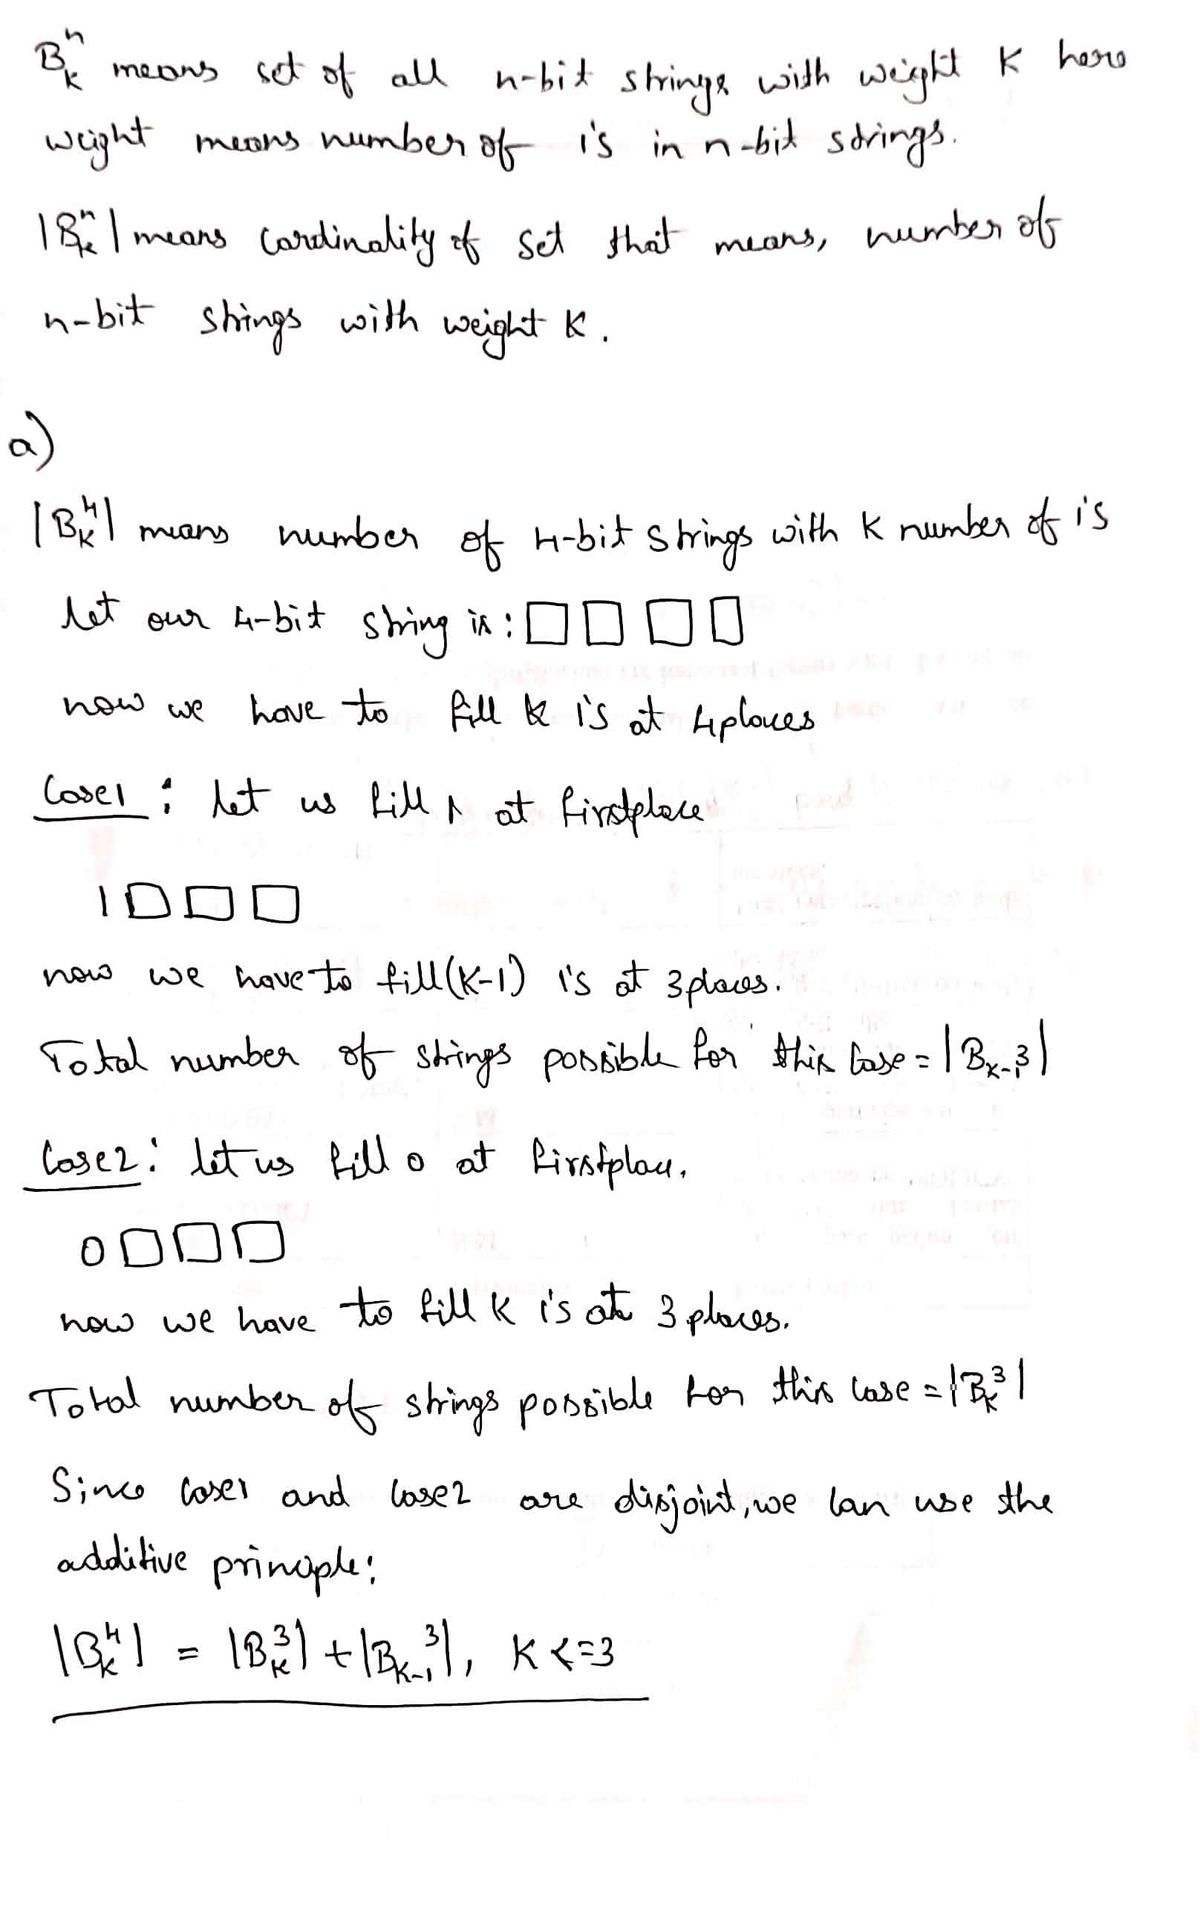 B^n_k means set of all n-bit strings with weight K here
weight means number of 1's in n-bit strings.
|B^n_k| means cardinality of set that means, number of
n-bit strings with weight K.
a)
|B^4_k| means number of 4-bit strings with K number of 1's
let our 4-bit string is : □ □ □ □
now we have to fill k 1's at 4 places
Case1 : let us fill 1 at first place
1 □ □ □
now we have to fill (K-1) 1's at 3 places.
Total number of strings possible for this case = |B_{k-1}^3|
Case2 : let us fill 0 at first place.
0 □ □ □
now we have to fill K 1's at 3 places.
Total number of strings possible for this case = |B_k^3|
Since case1 and case2 are disjoint, we can use the
additive principle:
|B_k^4| = |B_k^3| + |B_{k-1}^3|, K <=3